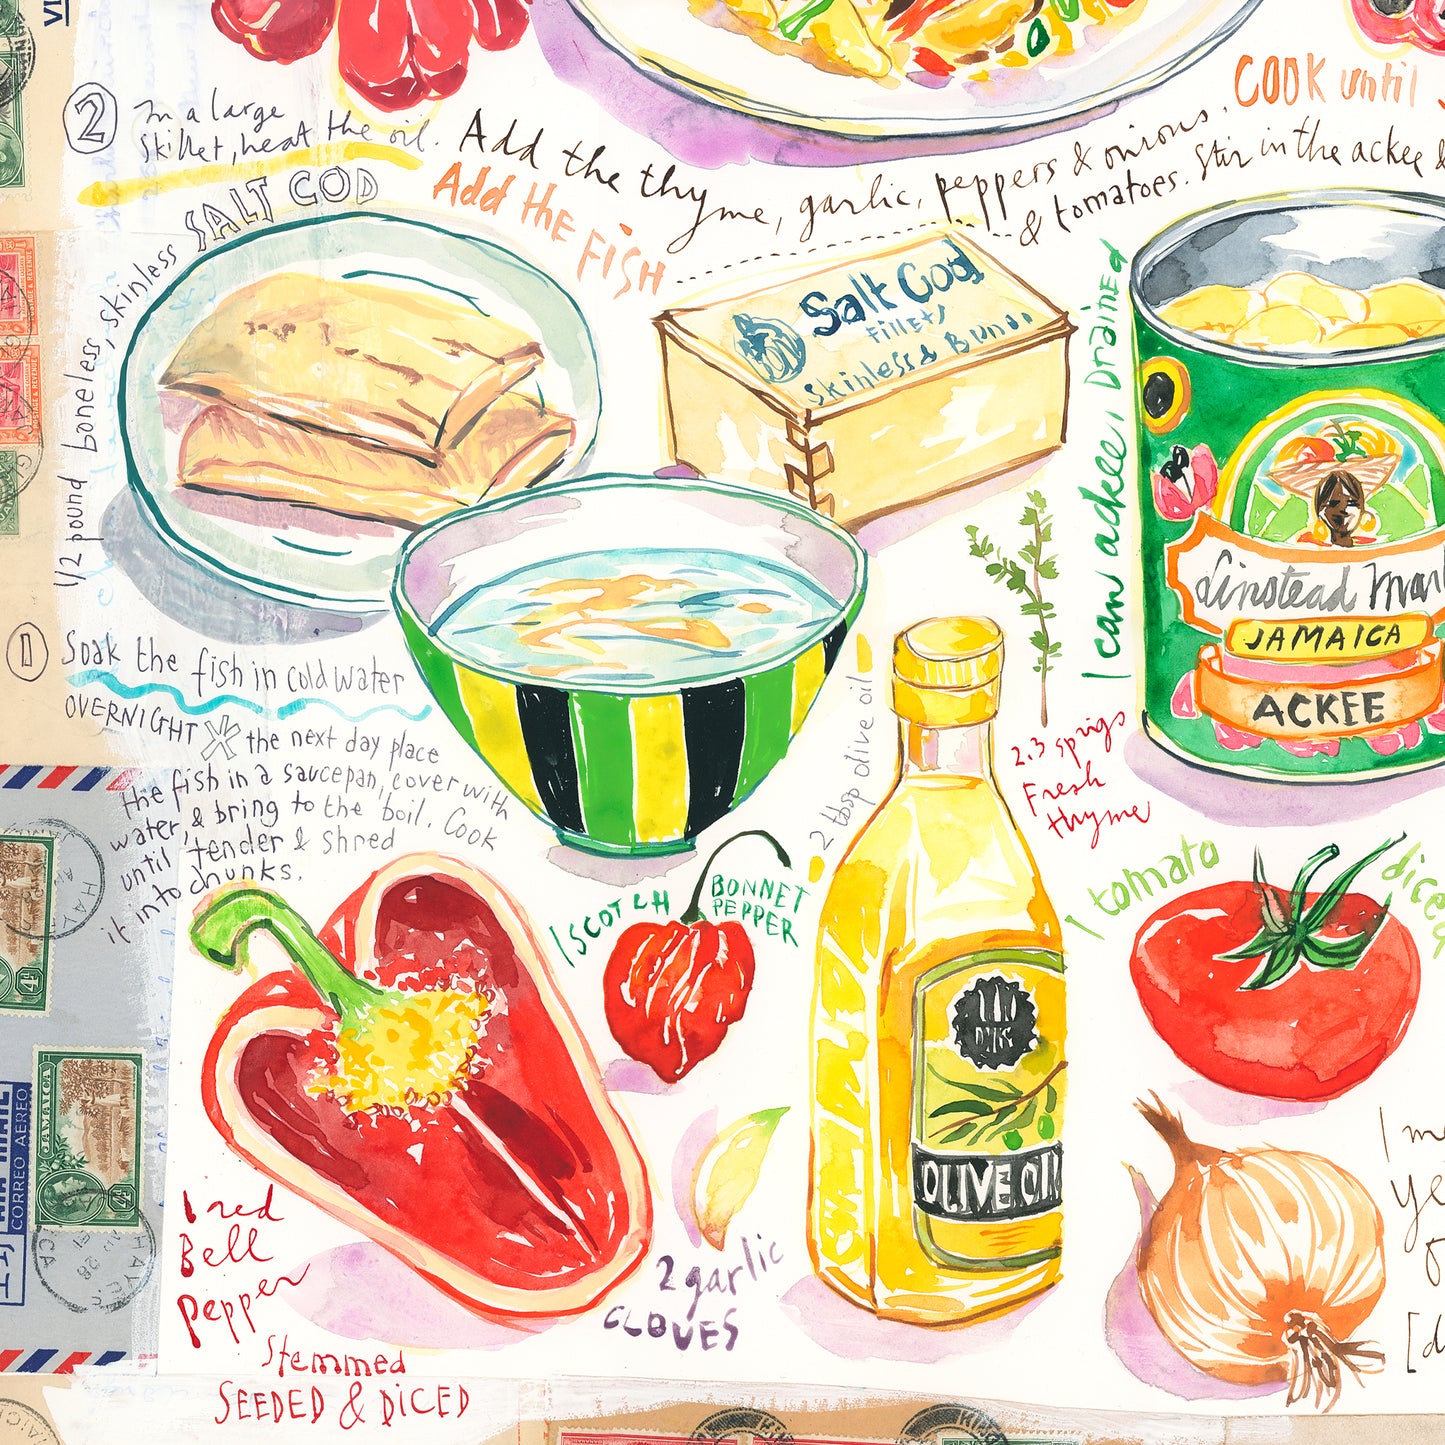 COOK until
2 In a large
Skillet, heat the oil.
Add the thyme, garlic, peppers & onions.
Stir in the ackee &
& tomatoes.
Add the FiSH
1/2 pound boneless, skinless SALT COD
Salt Cod
Fillets
Skinless &
1 can ackee, Drained
Linstead
JAMAICA
ACKEE
1 Soak the fish in cold water
OVERNIGHT * the next day place
the fish in a saucepan, cover with
water, & bring to the boil. Cook
until tender & shred
it into chunks.
2 tbsp olive oil
2.3 sprigs
Fresh
thyme
1 SCOTCH BONNET
PEPPER
1 tomato
diced
OLIVE OIL
1 red
Bell
Pepper
Stemmed
SEEDED & DiCED
2 garlic
CLOVES
JAMAICA
CORREO AEREO
AIR MAIL
POSTAGE & REVENUE